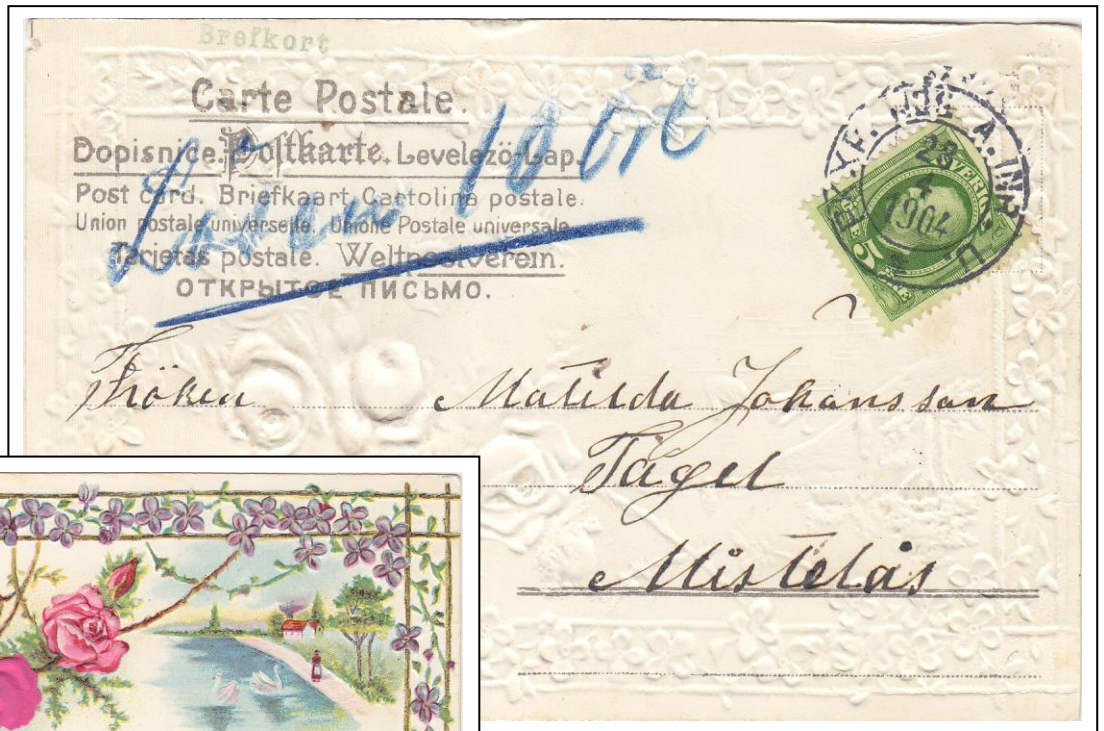 Brefkort
Carte Postale.
Dopisnice. Postkarte. Levelező-Lap.
Post card. Briefkaart. Cartolina postale.
Union postale universelle. Unione Postale universale.
Tarjetas postale. Weltpostverein.
ОТКРЫТОЕ ПИСЬМО.
Lösen 10 öre
SVERIGE
5
23
4
1904
Fröken Matilda Johansson
Tågel
Mistelås